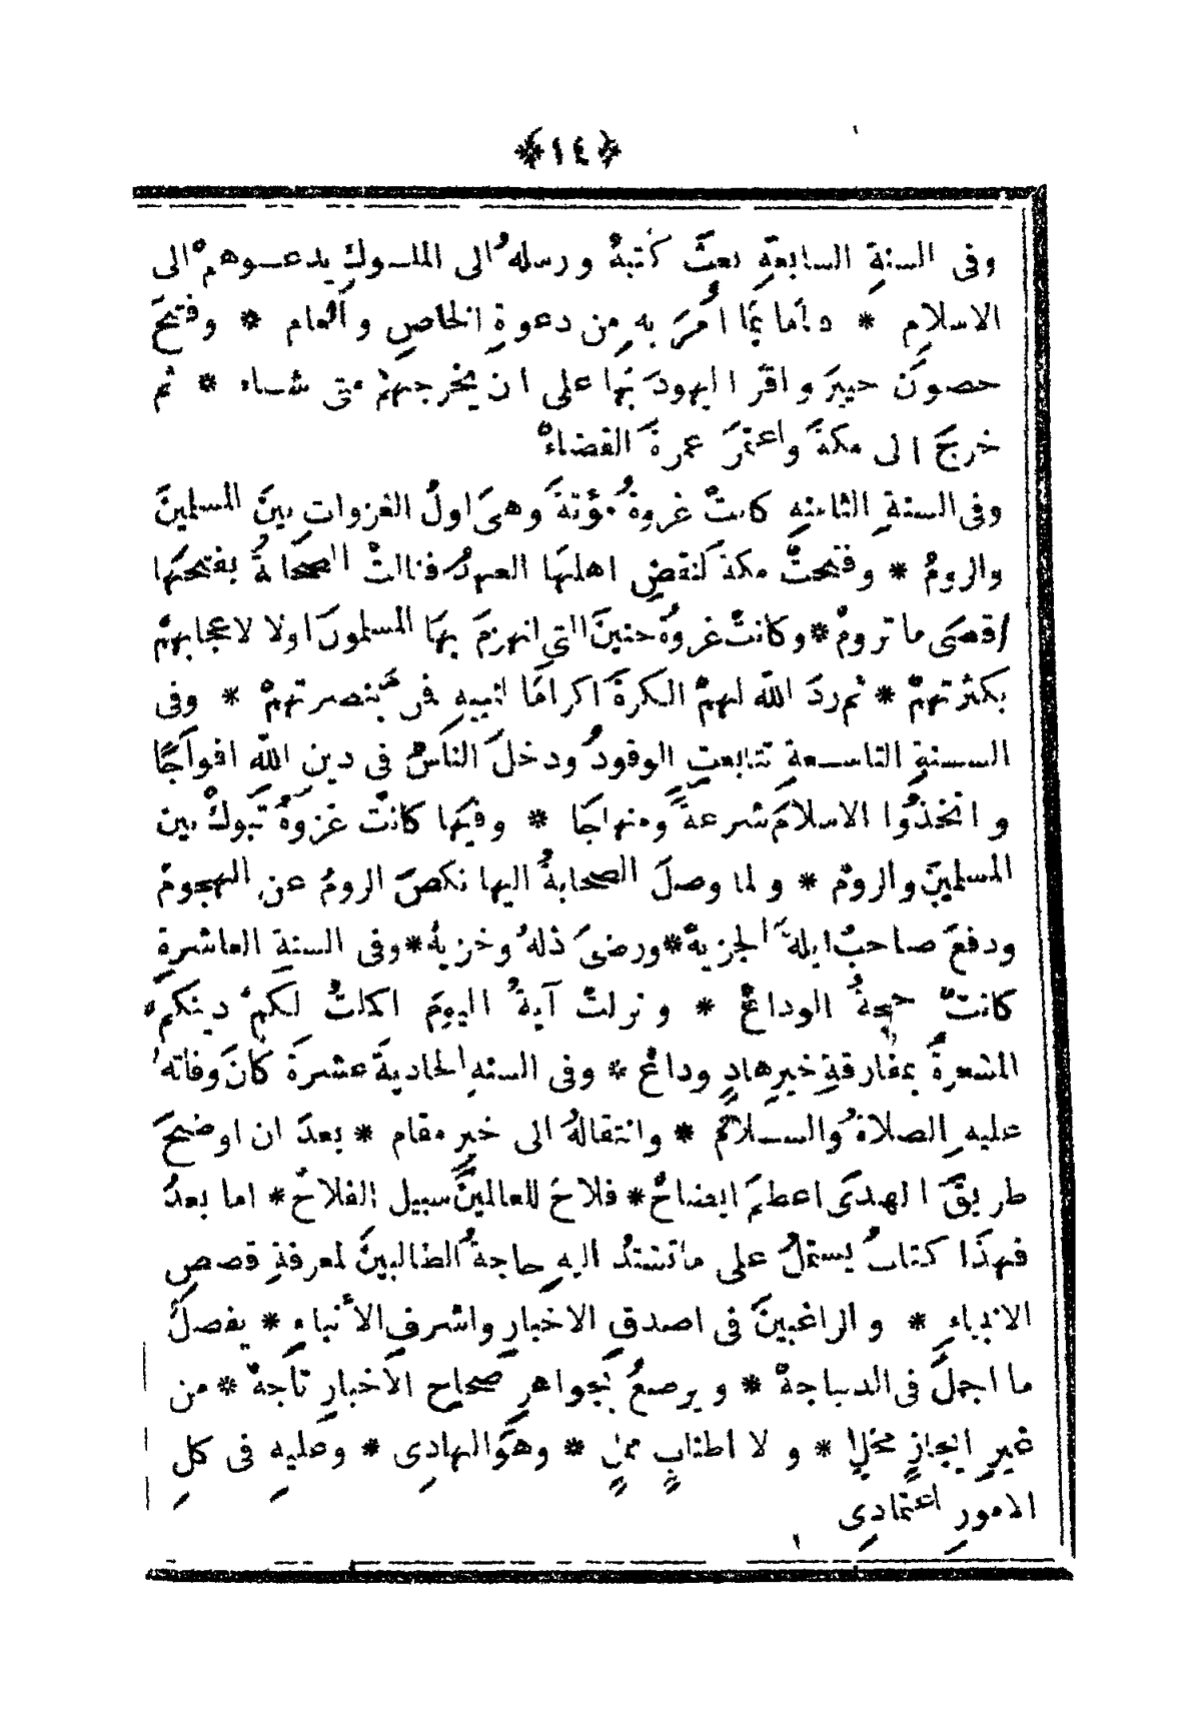 ﴿١٤﴾
وفى السنةِ السابعةِ بعثَ كُتبهُ ورسلهُ الى الملوكِ يدعوهمْ الى
الاسلامِ * دائما بما اُمرَ به من دعوةِ الخاصِ والعام * وفتحَ
حصونَ خيبرَ واقرَّ اليهودَ بها على ان يخرجهمْ متى شاء * ثم
خرجَ الى مكةَ واعتمرَ عمرةَ القضاءْ
وفى السنةِ الثامنهِ كانتْ غزوةُ مؤتةَ وهىَ اولُ الغزواتِ بينَ المسلمينَ
والرومْ * وفتحتْ مكةَ لنقضِ اهلها العهدْ فنالتْ الصحابةُ بفتحها
اقصى ما ترومْ * وكانتْ غزوةُ حنينَ التى انهزمَ بها المسلمونَ اولا لاعجابهمْ
بكثرتهمْ * ثم ردَ اللّه لهمُ الكرةَ اكرامًا لنبيهِ فمن بنصرتهمْ * وفى
السنةِ التاسعةِ تتابعتِ الوفودُ ودخلَ الناسُ فى دينِ اللّه افواجًا
واتخذُوا الاسلامَ شرعةً ومنهاجًا * وفيها كانتْ غزوةُ تبوكْ بين
المسلمينَ والرومْ * ولما وصلَ الصحابةُ اليها نكصَ الرومُ عن الهجومْ
ودفعَ صاحبُ ايلةَ الجزيةْ * ورضىَ ذلهُ وخزيهْ * وفى السنةِ العاشرةِ
كانتْ حجةُ الوداعْ * ونزلتْ آيةُ اليومَ اكملتُ لكمْ دينكمْ
المشعرةُ بمفارقةِ خيرِ هادٍ وداعْ * وفى السنهِ الحاديةَ عشرةَ كانَ وفاته
عليهِ الصلاةُ والسلامْ * وانتقالهُ الى خيرِ مقام * بعدَ ان اوضحَ
طريقَ الهدىَ اعظمَ ايضاحْ * فلاحَ للعالمينَ سبيل الفلاحْ * اما بعدُ
فهذَا كتابٌ يشتملُ على ما تشتدُ اليهِ حاجةُ الطالبينَ لمعرفةِ قصصِ
الانبياءِ * والراغبينَ فى اصدقِ الاخبارِ واشرفِ الأنباءِ * يفصلُ
ما اجملَ فى الديباجةْ * ويرصعُ بجواهرِ صحاحِ الاخبارِ تاجهْ * من
غيرِ ايجازٍ مخلٍ * ولا اطنابٍ مملٍ * وهوَ الهادِى * وعليهِ فى كلِ
الامورِ اعتمادِى